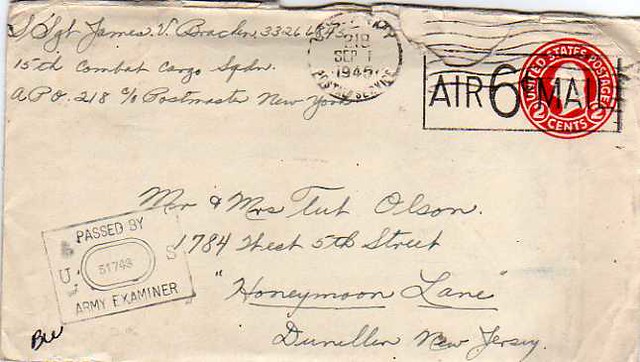 S/Sgt James. V. Bracken, 33261843
15th Combat Cargo Sqdn.
A.P.O. 218 c/o Postmaster New York
218
SEP 1
1945
POSTAL SERVICE
AIR 6¢ MAIL
UNITED STATES POSTAGE
2 CENTS 2
Mr & Mrs Tut Olson.
1784 West 5th Street
"Honeymoon Lane"
Dunellen New Jersey.
PASSED BY
U S
51743
ARMY EXAMINER